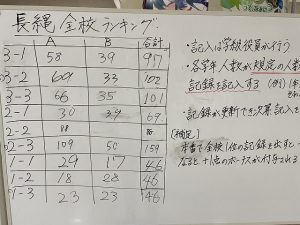 長縄 全校ランキング
A B 合計
3-1 58 39 97
3-2 69 33 102
3-3 66 35 101
2-1 30 39 69
2-2 88
2-3 109 50 159
1-1 29 17 46
1-2 18 28 46
1-3 23 23 46
・記入は学級役員が行う
・各学年人数が規定の人数
記録を記入する (例)
・記録が更新でき次第記入を
【検定】
本番で全校1位の記録を出すと
なると +1位のボーナスが付与される